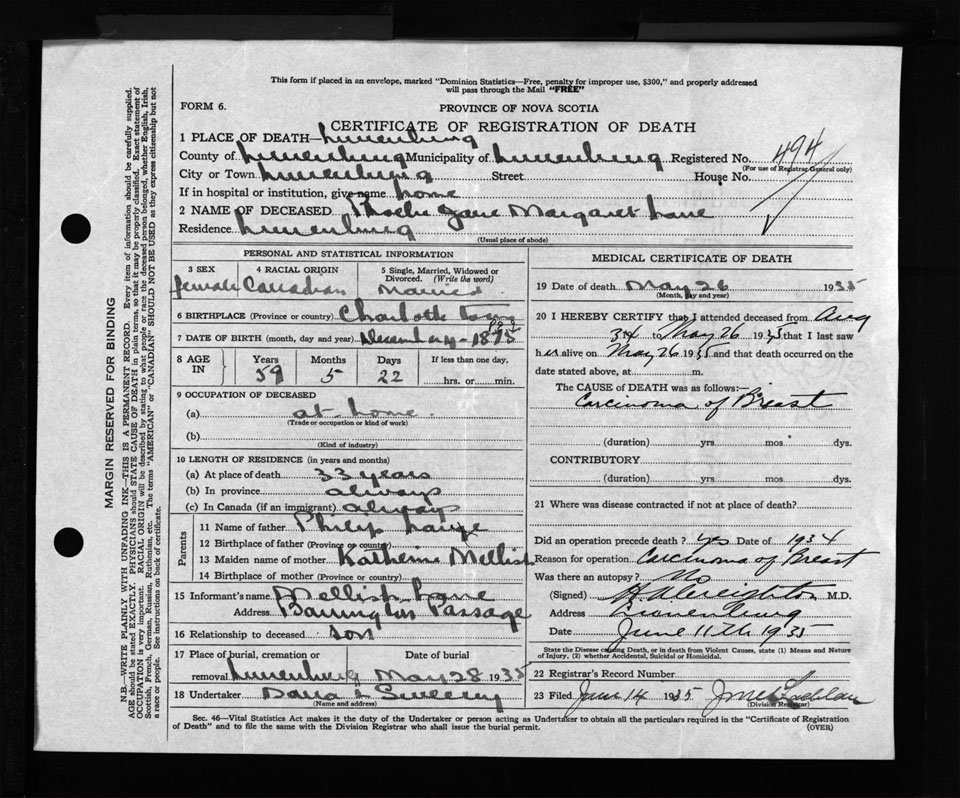 This form if placed in an envelope, marked "Dominion Statistics—Free, penalty for improper use, $300," and properly addressed
will pass through the Mail "FREE"
FORM 6.
PROVINCE OF NOVA SCOTIA
CERTIFICATE OF REGISTRATION OF DEATH
1 PLACE OF DEATH— Lunenburg
County of Lunenburg Municipality of Lunenburg Registered No. 494
(For use of Registrar General only)
City or Town Lunenburg Street House No.
If in hospital or institution, give name home
2 NAME OF DECEASED Phoebe Jane Margaret Lane
Residence Lunenburg
(Usual place of abode)
PERSONAL AND STATISTICAL INFORMATION
3 SEX 4 RACIAL ORIGIN 5 Single, Married, Widowed or Divorced. (Write the word)
female Canadian Married
6 BIRTHPLACE (Province or country) Charlotte Town
7 DATE OF BIRTH (month, day and year) December 4 - 1875
8 AGE IN Years Months Days If less than one day,
59 5 22 hrs. or min.
9 OCCUPATION OF DECEASED
(a) at home
(Trade or occupation or kind of work)
(b)
(Kind of industry)
10 LENGTH OF RESIDENCE (in years and months)
(a) At place of death 33 years
(b) In province always
(c) In Canada (if an immigrant) always
Parents
11 Name of father Philip
12 Birthplace of father (Province or country)
13 Maiden name of mother Katherine Mellish
14 Birthplace of mother (Province or country)
15 Informant's name Mellish Lane
Address Barrington Passage
16 Relationship to deceased son
17 Place of burial, cremation or Date of burial
removal Lunenburg May 28 1935
18 Undertaker Dana L Sweeny
(Name and address)
MEDICAL CERTIFICATE OF DEATH
19 Date of death May 26 1935
(Month, day and year)
20 I HEREBY CERTIFY that I attended deceased from Aug
34 to May 26 1935 that I last saw
h er alive on May 26 1935 and that death occurred on the
date stated above, at m.
The CAUSE of DEATH was as follows:—
Carcinoma of Breast
(duration) yrs mos dys.
CONTRIBUTORY
(duration) yrs. mos. dys.
21 Where was disease contracted if not at place of death?
Did an operation precede death? Yes Date of 1934
Reason for operation Carcinoma of Breast
Was there an autopsy? No
(Signed) Creighton M.D.
Address Lunenburg
Date June 11th 1935
State the Disease causing Death, or in death from Violent Causes, state (1) Means and Nature
of Injury, (2) whether Accidental, Suicidal or Homicidal.
22 Registrar's Record Number
23 Filed June 14 1935
(Division Registrar)
Sec. 46—Vital Statistics Act makes it the duty of the Undertaker or person acting as Undertaker to obtain all the particulars required in the "Certificate of Registration
of Death" and to file the same with the Division Registrar who shall issue the burial permit. (OVER)
MARGIN RESERVED FOR BINDING
N.B.—WRITE PLAINLY WITH UNFADING INK—THIS IS A PERMANENT RECORD. Every item of information should be carefully supplied.
AGE should be stated EXACTLY. PHYSICIANS should STATE CAUSE OF DEATH in plain terms, so that it may be properly classified. Exact statement of
OCCUPATION is very important. RACIAL ORIGIN will be described by stating to what people or race the deceased person belonged, whether English, Irish,
Scottish, French, German, Russian, Ruthenian, etc. The terms "AMERICAN" or "CANADIAN" SHOULD NOT BE USED as they express citizenship but not
a race or people. See instructions on back of certificate.